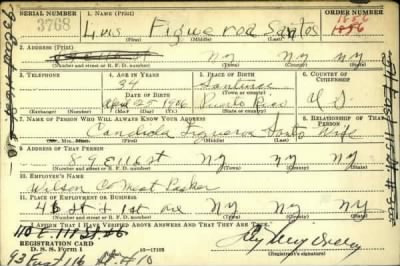 SERIAL NUMBER 1. NAME (Print) ORDER NUMBER
3768 Luis Figueroa Santos 1886
(First) (Middle) (Last)
2. ADDRESS (Print)
N y N y N y
(Number and street or R. F. D. number) (Town) (County) (State)
3. TELEPHONE 4. AGE IN YEARS 5. PLACE OF BIRTH 6. COUNTRY OF CITIZENSHIP
34 Santurce
DATE OF BIRTH (Town or county)
April 25 1906 Puerto Rico U S
(Exchange) (Number) (Mo.) (Day) (Yr.) (State or country)
7. NAME OF PERSON WHO WILL ALWAYS KNOW YOUR ADDRESS 8. RELATIONSHIP OF THAT PERSON
Candida Figueroa Santos Wife
(Mr., Mrs., Miss) (First) (Middle) (Last)
9. ADDRESS OF THAT PERSON
89 E 116 st N y N y N y
(Number and street or R. F. D. number) (Town) (County) (State)
10. EMPLOYER'S NAME
Wilson Co Meat Packer
11. PLACE OF EMPLOYMENT OR BUSINESS
st + 1st ave N y N y
(Number and street or R. F. D. number) (Town) (County) (State)
I AFFIRM THAT I HAVE VERIFIED ABOVE ANSWERS AND THAT THEY ARE TRUE.
110 E. 111 St
REGISTRATION CARD
D. S. S. Form 1
(Registrant's signature)
93 East 116 St # 10